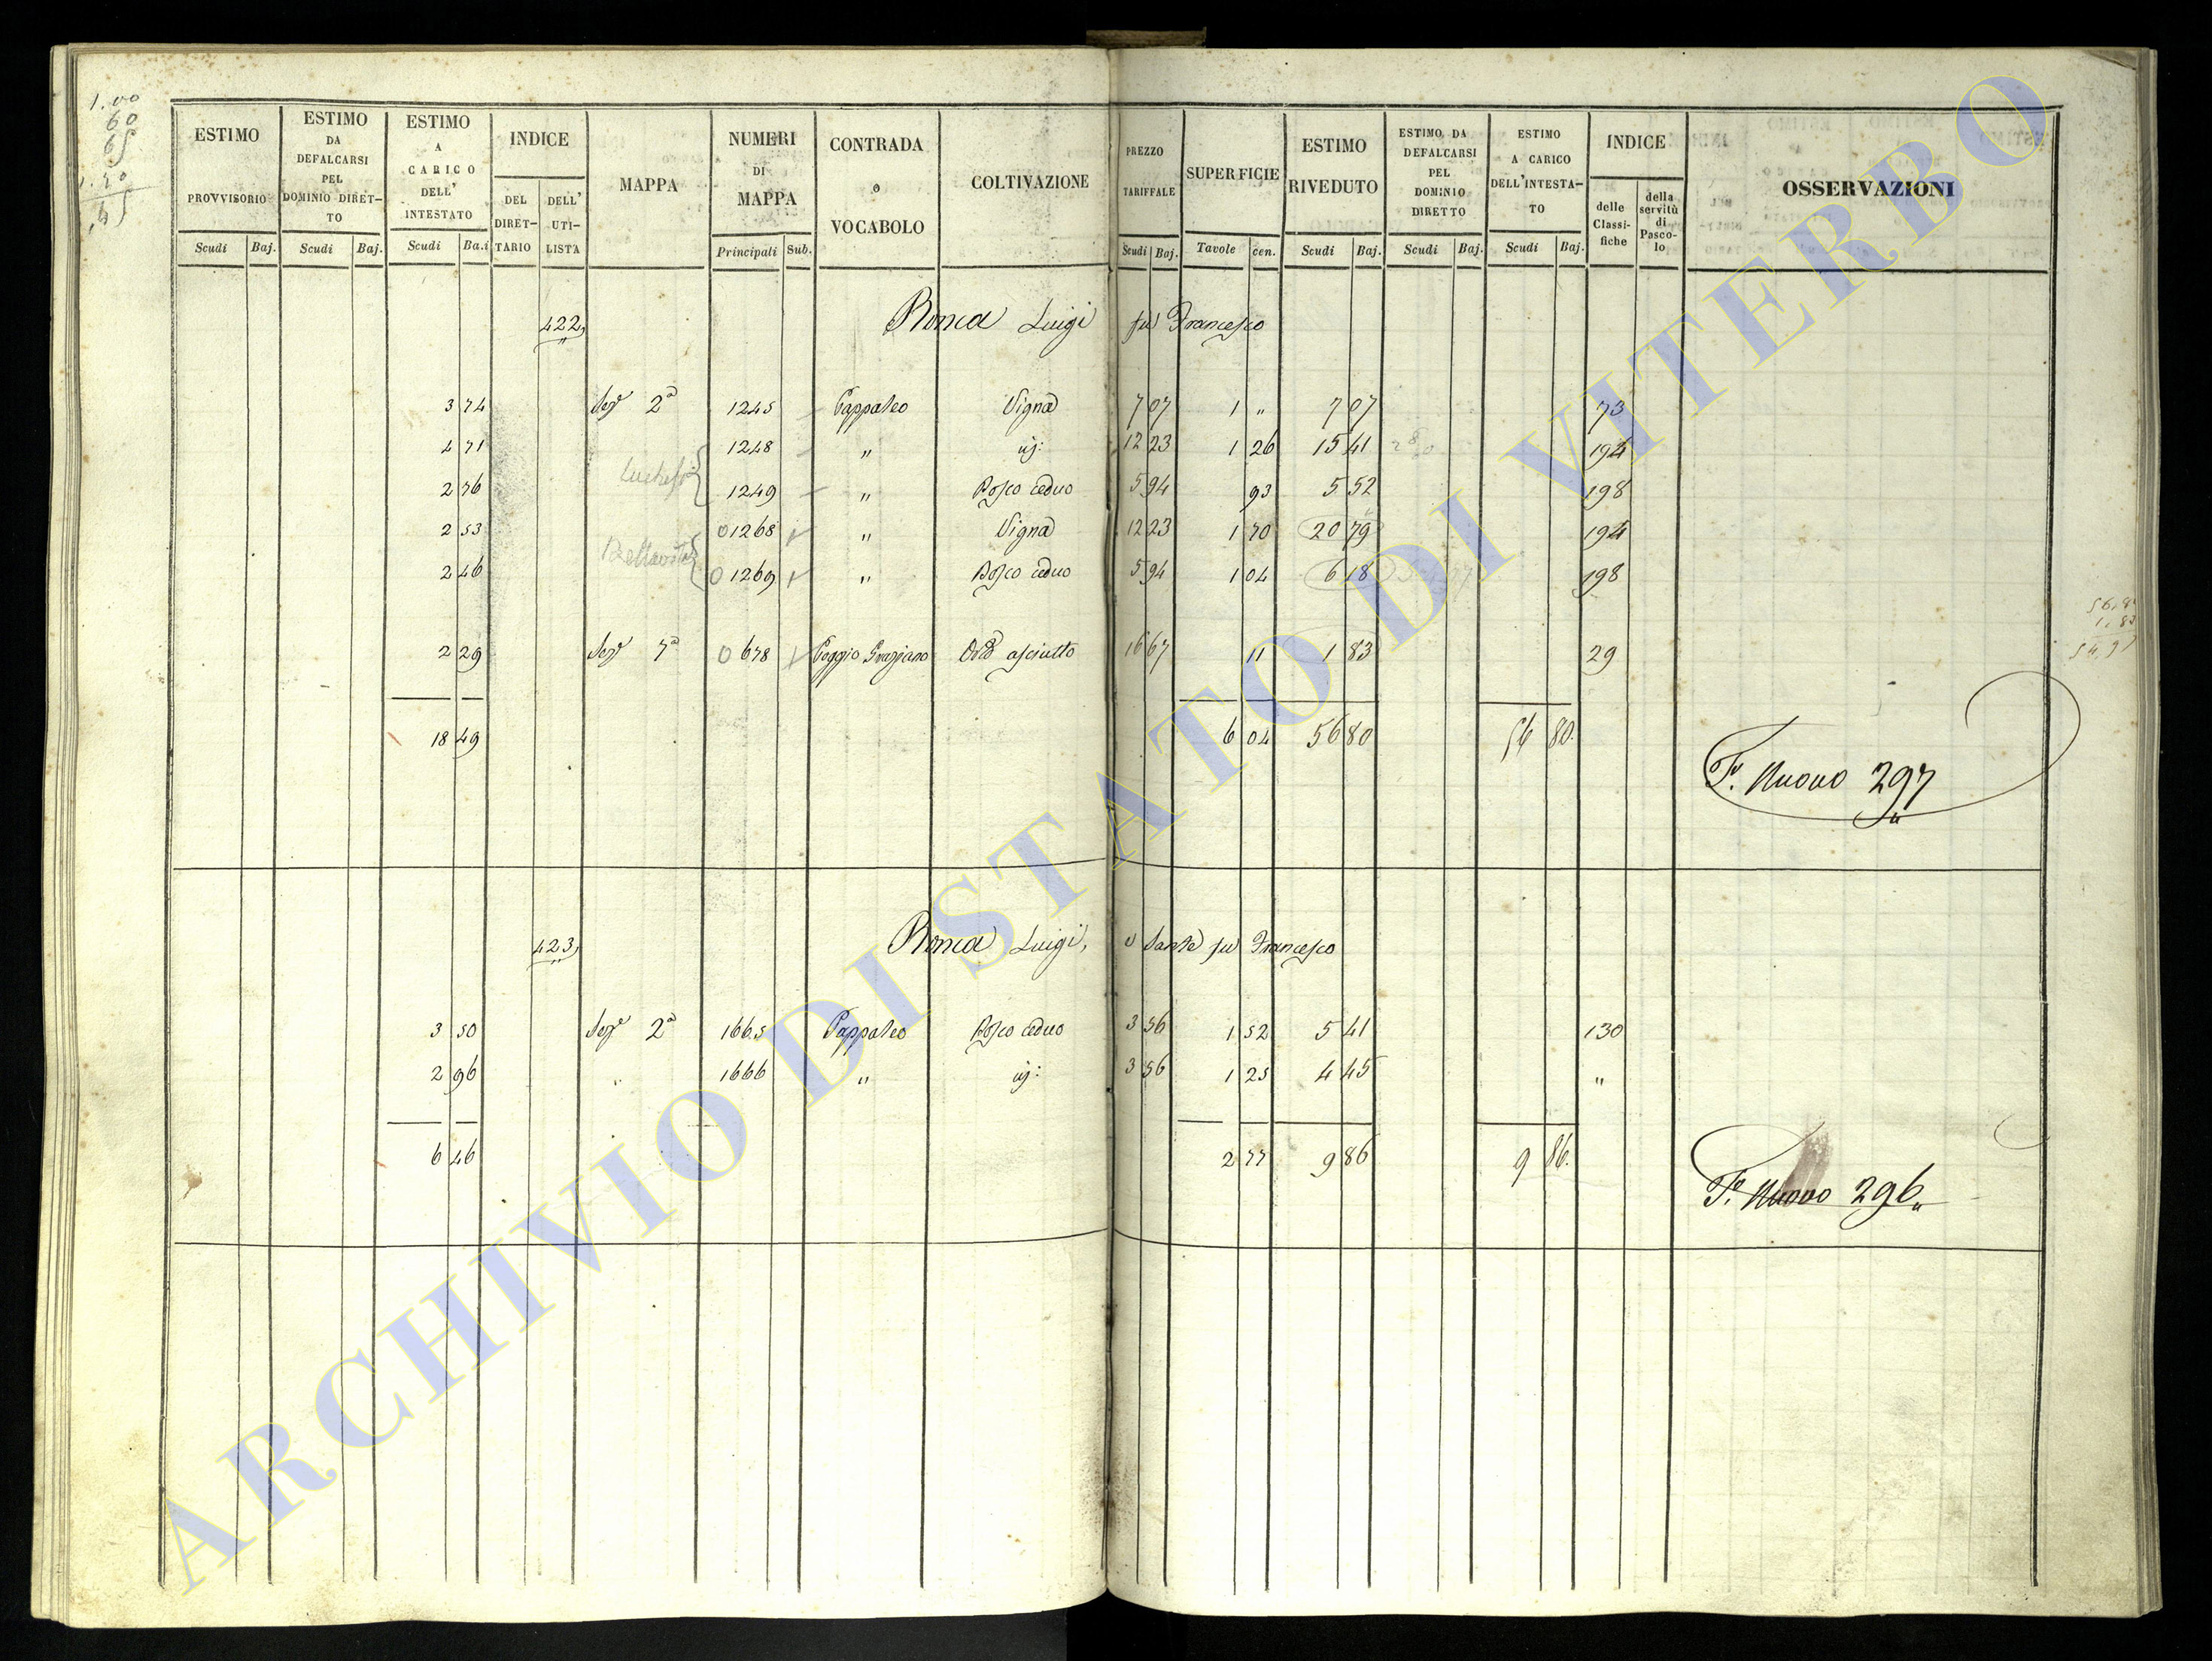 ESTIMO PROVVISORIO Scudi Baj.
ESTIMO DA DEFALCARSI PEL DOMINIO DIRET-TO Scudi Baj.
ESTIMO A CARICO DELL' INTESTATO Scudi Ba.i
INDICE DEL DIRET-TARIO DELL' UTI-LISTA
MAPPA
NUMERI DI MAPPA Principali Sub.
CONTRADA o VOCABOLO
COLTIVAZIONE
PREZZO TARIFFALE Scudi Baj.
SUPERFICIE Tavole cen.
ESTIMO RIVEDUTO Scudi Baj.
ESTIMO DA DEFALCARSI PEL DOMINIO DIRETTO Scudi Baj.
ESTIMO A CARICO DELL'INTESTA-TO Scudi Baj.
INDICE delle Classi-fiche della servitù di Pasco-lo
OSSERVAZIONI
422, Ronca Luigi fu Francesco
3 74 Sez.e 2a 1245 Pappaleo Vigna 7 07 1 " 7 07 73
4 71 1248 " id: 12 23 1 26 15 41 194
2 76 1249 " Bosco ceduo 5 94 93 5 52 198
2 53 0 1268 " Vigna 12 23 1 70 20 79 194
2 46 0 1269 " Bosco ceduo 5 94 1 04 6 18 198
2 29 Sez.e 7a 0 678 Poggio Graziano Orto asciutto 16 67 11 1 83 29
18 49 6 04 56 80 56 80.
F.o Nuovo 297
423, Ronca Luigi, e Sante fu Francesco
3 50 Sez.e 2a 1665 Pappaleo Bosco ceduo 3 56 1 52 5 41 130
2 96 " 1666 " id: 3 56 1 25 4 45 "
6 46 2 77 9 86 9 86.
F.o Nuovo 296
ARCHIVIO DI STATO DI VITERBO